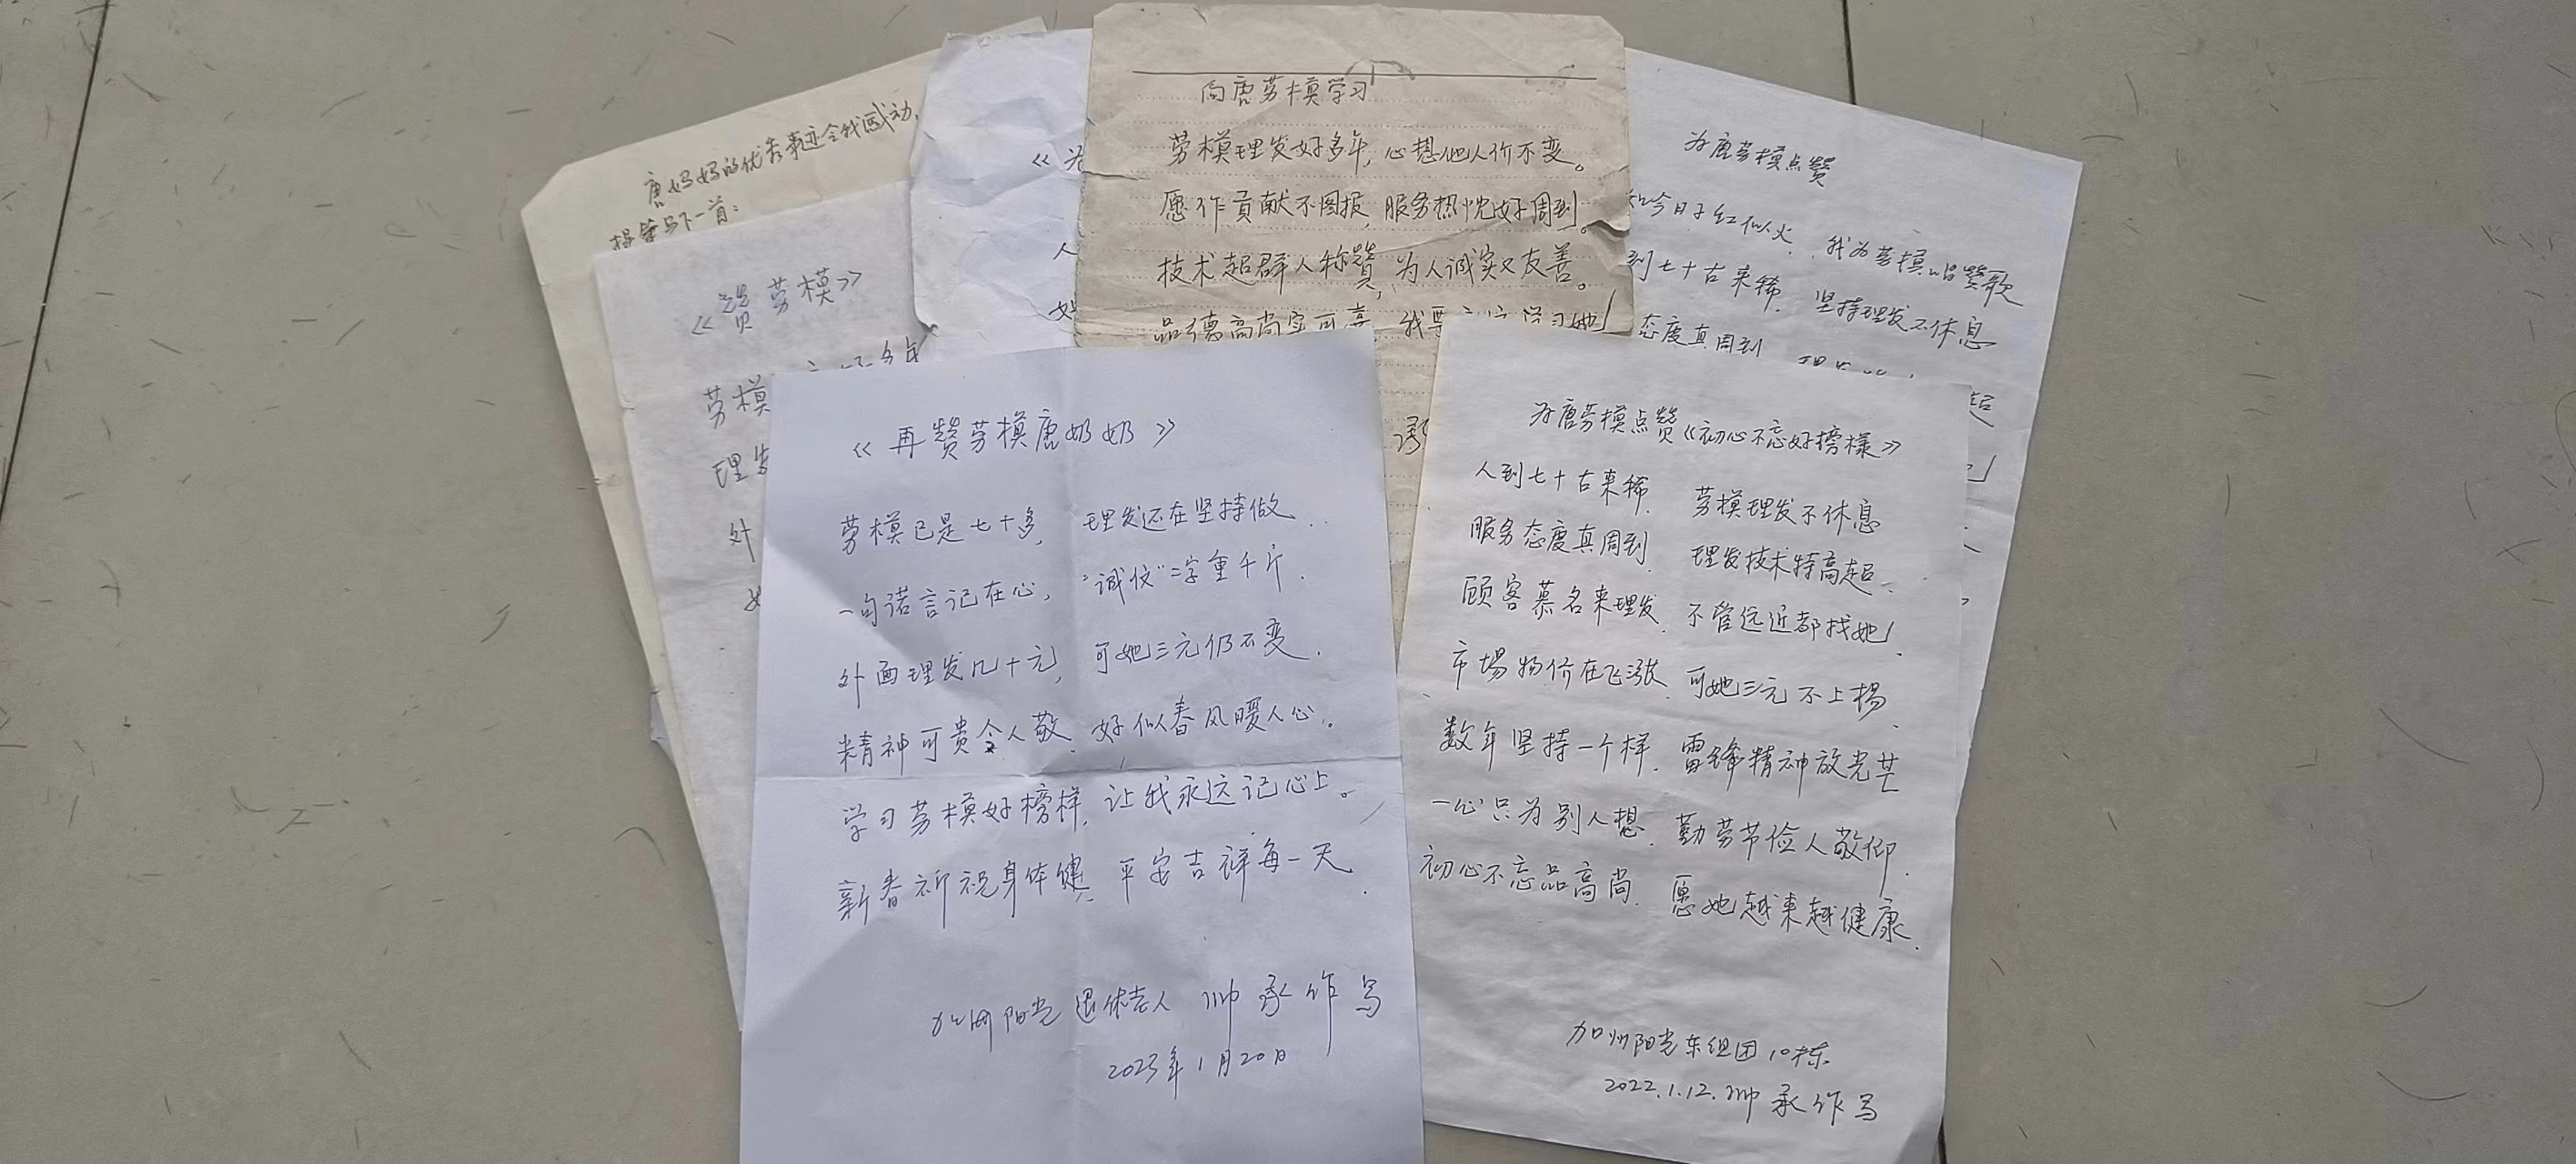 唐妈妈的优秀事迹令我感动,
提笔写下一首:
《赞劳模》
劳模
理发
外
《为
人
向唐劳模学习
劳模理发好多年,心想他人价不变。
愿作贡献不图报,服务热忱好周到。
技术超群人称赞,为人诚实又友善。
品德高尚实可喜 我要 学习她
承
为唐劳模点赞
如今日子红似火 我为劳模唱赞歌
到七十古来稀 坚持理发不休息
态度真周到
《再赞劳模唐奶奶》
劳模已是七十多, 理发还在坚持做.
一句诺言记在心, “诚信”二字重千斤.
外面理发几十元, 可她三元仍不变.
精神可贵令人敬, 好似春风暖人心.
学习劳模好榜样, 让我永远记心上。
新春祈祝身体健, 平安吉祥每一天.
加州阳光退休老人 帅承作写
2023年1月20日
为唐劳模点赞《初心不忘好榜樣》
人到七十古来稀. 劳模理发不休息
服务态度真周到. 理发技术特高超.
顾客慕名来理发. 不管远近都找她.
市場物价在飞涨. 可她三元不上楊.
数年坚持一个样. 雷锋精神放光芒
一心只为别人想. 勤劳节俭人敬仰.
初心不忘品高尚. 愿她越来越健康.
加州阳光东组团10栋
2022.1.12.帅承作写